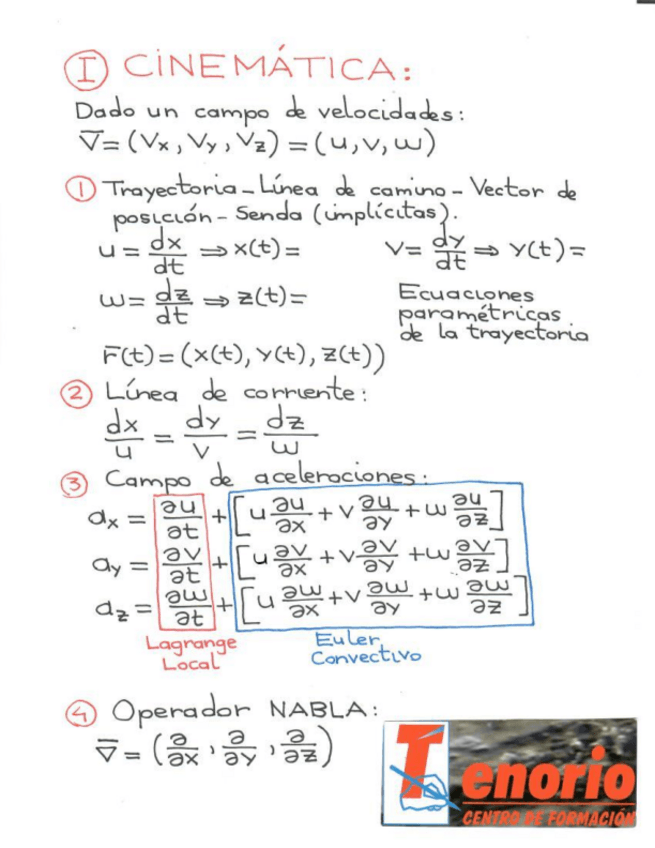 I CINEMÁTICA:
Dado un campo de velocidades:
V̄ = (Vx, Vy, Vz) = (u, v, w)
1 Trayectoria - Línea de camino - Vector de
posición - Senda (implícitas).
u = dx/dt ⇒ x(t) = v = dy/dt ⇒ y(t) =
w = dz/dt ⇒ z(t) = Ecuaciones
paramétricas
de la trayectoria
r̄(t) = (x(t), y(t), z(t))
2 Línea de corriente:
dx/u = dy/v = dz/w
3 Campo de aceleraciones:
ax = ∂u/∂t + [u ∂u/∂x + v ∂u/∂y + w ∂u/∂z]
ay = ∂v/∂t + [u ∂v/∂x + v ∂v/∂y + w ∂v/∂z]
az = ∂w/∂t + [u ∂w/∂x + v ∂w/∂y + w ∂w/∂z]
Lagrange Euler
Local Convectivo
4 Operador NABLA:
∇̄ = (∂/∂x, ∂/∂y, ∂/∂z)
Tenorio
CENTRO DE FORMACIÓN